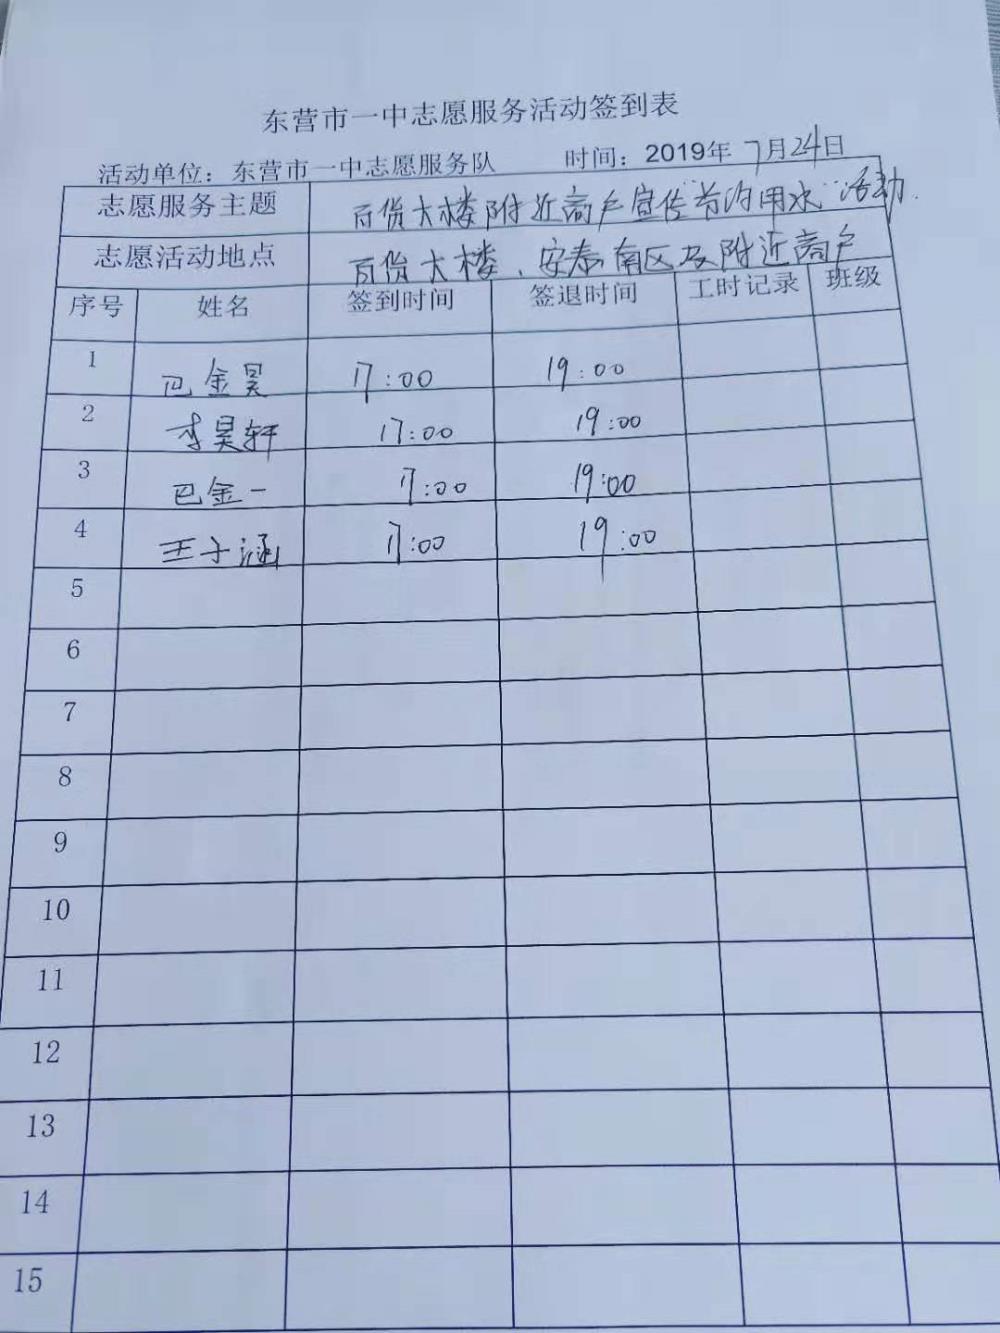 东营市一中志愿服务活动签到表
活动单位：东营市一中志愿服务队 时间：2019年 7月24日
志愿服务主题 百货大楼附近商户宣传节约用水"活动.
志愿活动地点 百货大楼、安泰南区及附近商户
序号 姓名 签到时间 签退时间 工时记录 班级
1 巴金昊 17:00 19:00
2 李昊轩 17:00 19:00
3 巴金一 17:00 19:00
4 王子涵 17:00 19:00
5
6
7
8
9
10
11
12
13
14
15